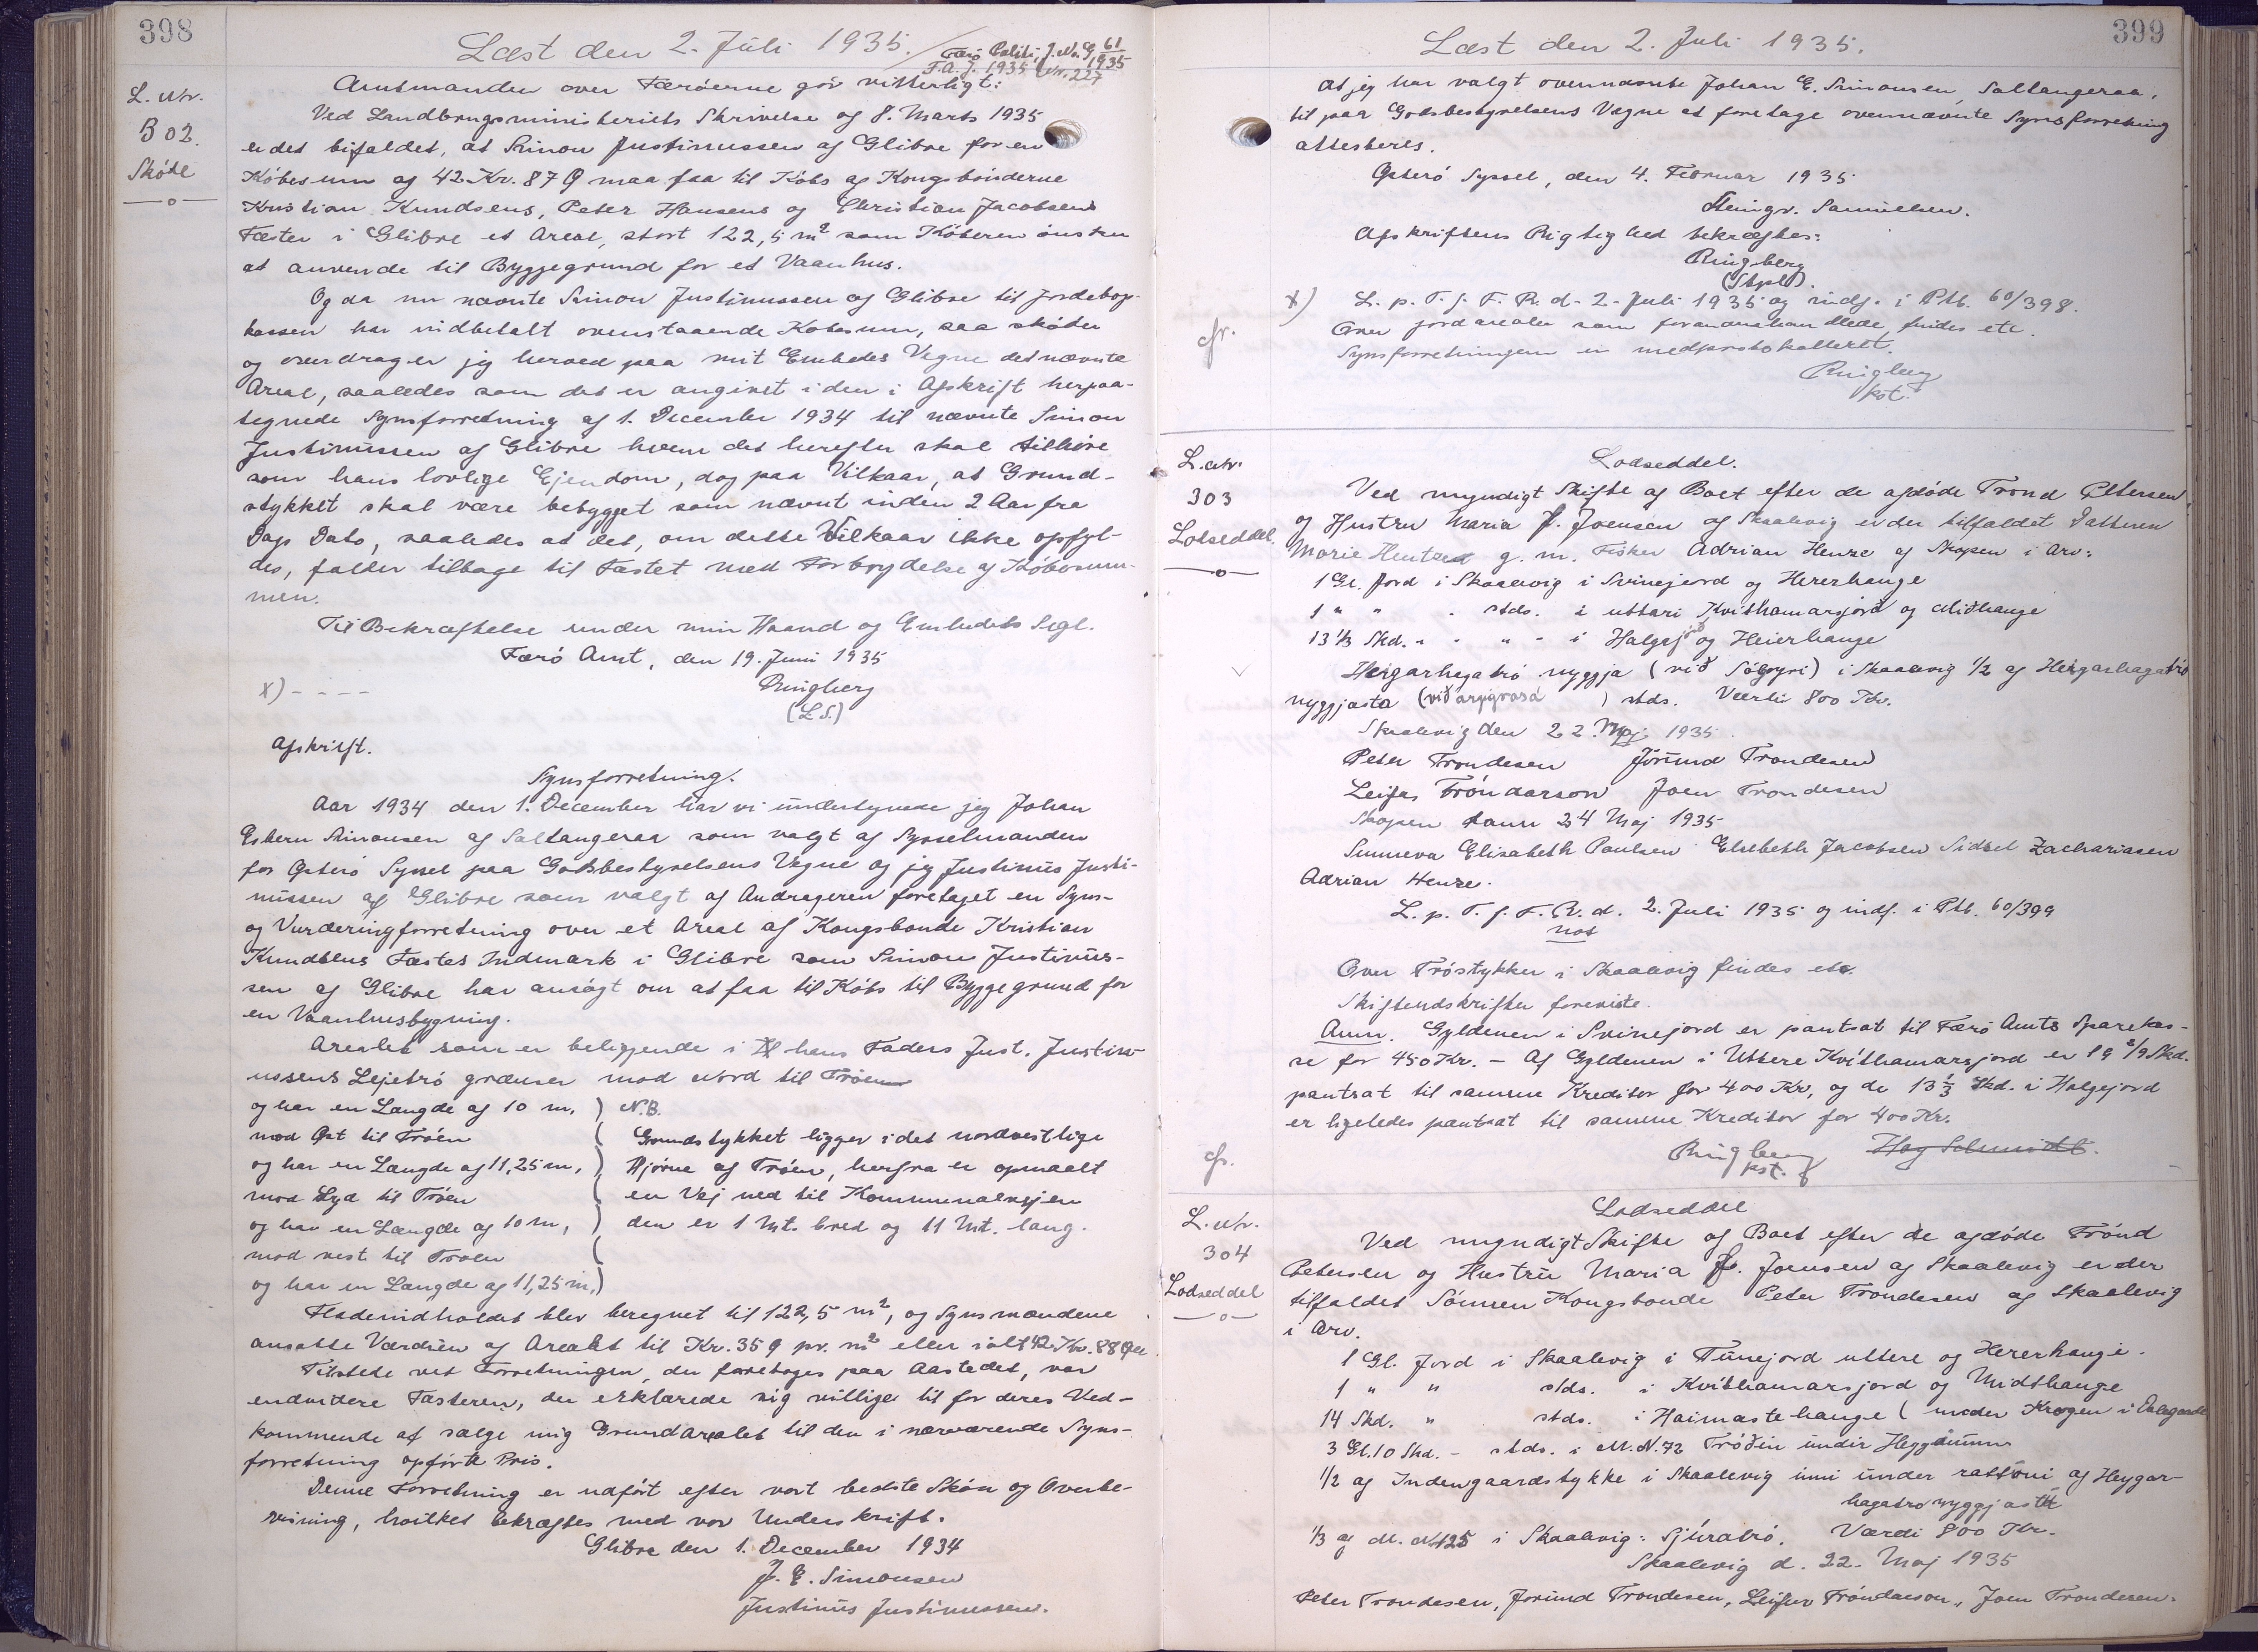 398
Læst den 2. Juli 1935.
Færö Politi J. Nr. G 61/1935
F.A.J. 1935 Nr. 227
L. Nr.
302.
Skøde
Amtmanden over Færöerne gör vitterligt:
Ved Landbrugsministeriets Skrivelse af 8. Marts 1935
er det bifaldet, at Simon Justinussen af Glibre for en
Köbesum af 42 Kr. 87 Ø maa faa til Köbs af Kongsbönderne
Kristian Knudsens, Peter Hansens og Christian Jacobsens
Fæster i Glibre et Areal, stort 122,5 m² som Köberen önsker
at anvende til Byggegrund for et Vaanhus.
Og da nu nævnte Simon Justinussen af Glibre til Jordebogs-
kassen har indbetalt ovenstaaende Köbesum, saa sköder
og overdrager jeg herved paa mit Embedes Vegne det nævnte
Areal, saaledes som det er angivet i den i Afskrift herpaa-
tegnede Synsforretning af 1. December 1934 til nævnte Simon
Justinussen af Glibre hvem det herefter skal tilhöre
som hans lovlige Ejendom, dog paa Vilkaar, at Grund-
stykket skal være bebygget som nævnt inden 2 Aar fra
Dags Dato, saaledes at det, om dette Vilkaar ikke opfyl-
des, falder tilbage til Fæstet med Forbrydelse af Köbesum-
men.
Til Bekræftelse under min Haand og Embedets Segl.
Færö Amt, den 19. Juni 1935
x) - - - -
Ringberg
(L.S.)
Afskrift.
Synsforretning.
Aar 1934 den 1. December har vi undertegnede jeg Johan
Esbern Simonsen af Saltangeraa som valgt af Sysselmanden
for Österö Syssel paa Godsbestyrelsens Vegne og jeg Justinus Justi-
nussen af Glibre som valgt af Andrageren foretaget en Syns-
og Vurderingforretning over et Areal af Kongsbonde Kristian
Knudsens Fæstes Indmark i Glibre som Simon Justinus-
sen af Glibre har ansögt om at faa til Köbs til Byggegrund for
en Vaanhusbygning.
Arealet som er beliggende i hans Faders Just. Justin-
ussens Lejetrö grænser mod Nord til Tröen
og har en Længde af 10 m,
mod Öst til Tröen
og har en Længde af 11,25 m,
mod Syd til Tröen
og har en Længde af 10 m,
mod vest til Tröen
og har en Længde af 11,25 m,
N.B.
Grundstykket ligger i det nordvestlige
Hjörne af Tröen, herfra er opmaalt
en Vej ned til Kommunalvejen
den er 1 Mt. bred og 11 Mt. lang.
Fladeindholdet blev beregnet til 122,5 m², og Synsmændene
ansatte Værdien af Arealet til Kr. 35 Ø pr. m² eller ialt 42 Kr. 88 Øre
Tilstede ved Forretningen, der foretoges paa Aastedet, var
endvidere Fæsteren, der erklærede sig villige til for deres Ved-
kommende at sælge mig Grundarealet til den i nærværende Syns-
forretning opförte Pris.
Denne Forretning er udfört efter vort bedste Skön og Overbe-
visning, hvilket bekræftes med vor Underskrift.
Glibre den 1. December 1934
J. E. Simonsen
Justinus Justinussen.
399
Læst den 2. Juli 1935.
At jeg har valgt ovennævnte Johan E. Simonsen, Saltangeraa,
til paa Godsbestyrelsens Vegne at foretage ovennævnte Synsforretning
attesteres.
Österö Syssel, den 4. Februar 1935
Steingr. Samuelsen.
Afskriftens Rigtighed bekræftes:
Ringberg
(Stpl).
x) L. p. T. f. F. R. d. 2. Juli 1935 og indf. i Ptb. 60/398.
cfr.
Over jordarealer som foranomhandlede, findes etc.
Synsforretningen er medprotokolleret.
Ringberg
kst.
L. Nr.
303
Lodseddel.
Lodseddel.
Ved myndigt Skifte af Boet efter de afdöde Trond Petersen
og Hustru Maria J. Joensen af Skaalevig er der tilfaldet Datteren
Marie g. m. Fisker Adrian Henze af Skopen i Arv:
1 Gl. Jord i Skaalevig i Svinejord og Hererhange
1 " " " stds. i uttari Kvithamarsjord og Miðhange
13 1/3 Skd. " " " i Halgajord og Heierhange
Heigarhagatrö nyggja (við ) i Skaalevig 1/2 af Heigarhagatrö
nyggjasta (við ) stds. Værdi 800 Kr.
Skaalevig den 22. Maj 1935.
Peter Trondesen Jörund Trondesen
Leifur Tróndarson Joen Trondesen
Skopen 24 Maj 1935
Sunneva Elisabeth Poulsen Elsebeth Jacobsen Sidsel Zachariasen
Adrian Henze.
L. p. T. f. F. R. d. 2. Juli 1935 og indf. i Ptb. 60/399
not
Over Tröstykker i Skaalevig findes etc.
Skifteudskrifter foreviste.
Anm. Gyldenen i Svinejord er pantsat til Færö Amts Sparekas-
se for 450 Kr. - Af Gyldenen i Uttere Kvithamarsjord er 19 2/9 Skd.
pantsat til samme Kreditor for 400 Kr, og de 13 1/3 Skd. i Halgejord
er ligeledes pantsat til samme Kreditor for 400 Kr.
cfr.
Ringberg
kst.
Hag Schmidt.
L. Nr.
304
Lodseddel
Lodseddel
Ved myndigt Skifte af Boet efter de afdöde Trónd
Petersen og Hustru Maria J. Joensen af Skaalevig er der
tilfaldet Sönnen Kongsbonde Peter Trondesen af Skaalevig
i Arv.
1 Gl. Jord i Skaalevig i Tünejord uttere og Hererhange.
1 " " stds. i Kvithamarsjord og Midthange
14 Skd. " stds. i Haimastehange ( Krogen i Dalegaard
3 Gl. 10 Skd. - stds. i M. N. 72 Tröðin undir Heyggjunum
1/2 af Indengaardstykke i Skaalevig inni under af Heygar-
hagatro nyggjastu
1/3 af M. N. 125 i Skaalevig: Sjúratrö. Værdi 800 Kr.
Skaalevig d. 22. Maj 1935
Peter Trondesen, Jorund Trondesen, Leifur Tróndarson, Joen Trondesen.